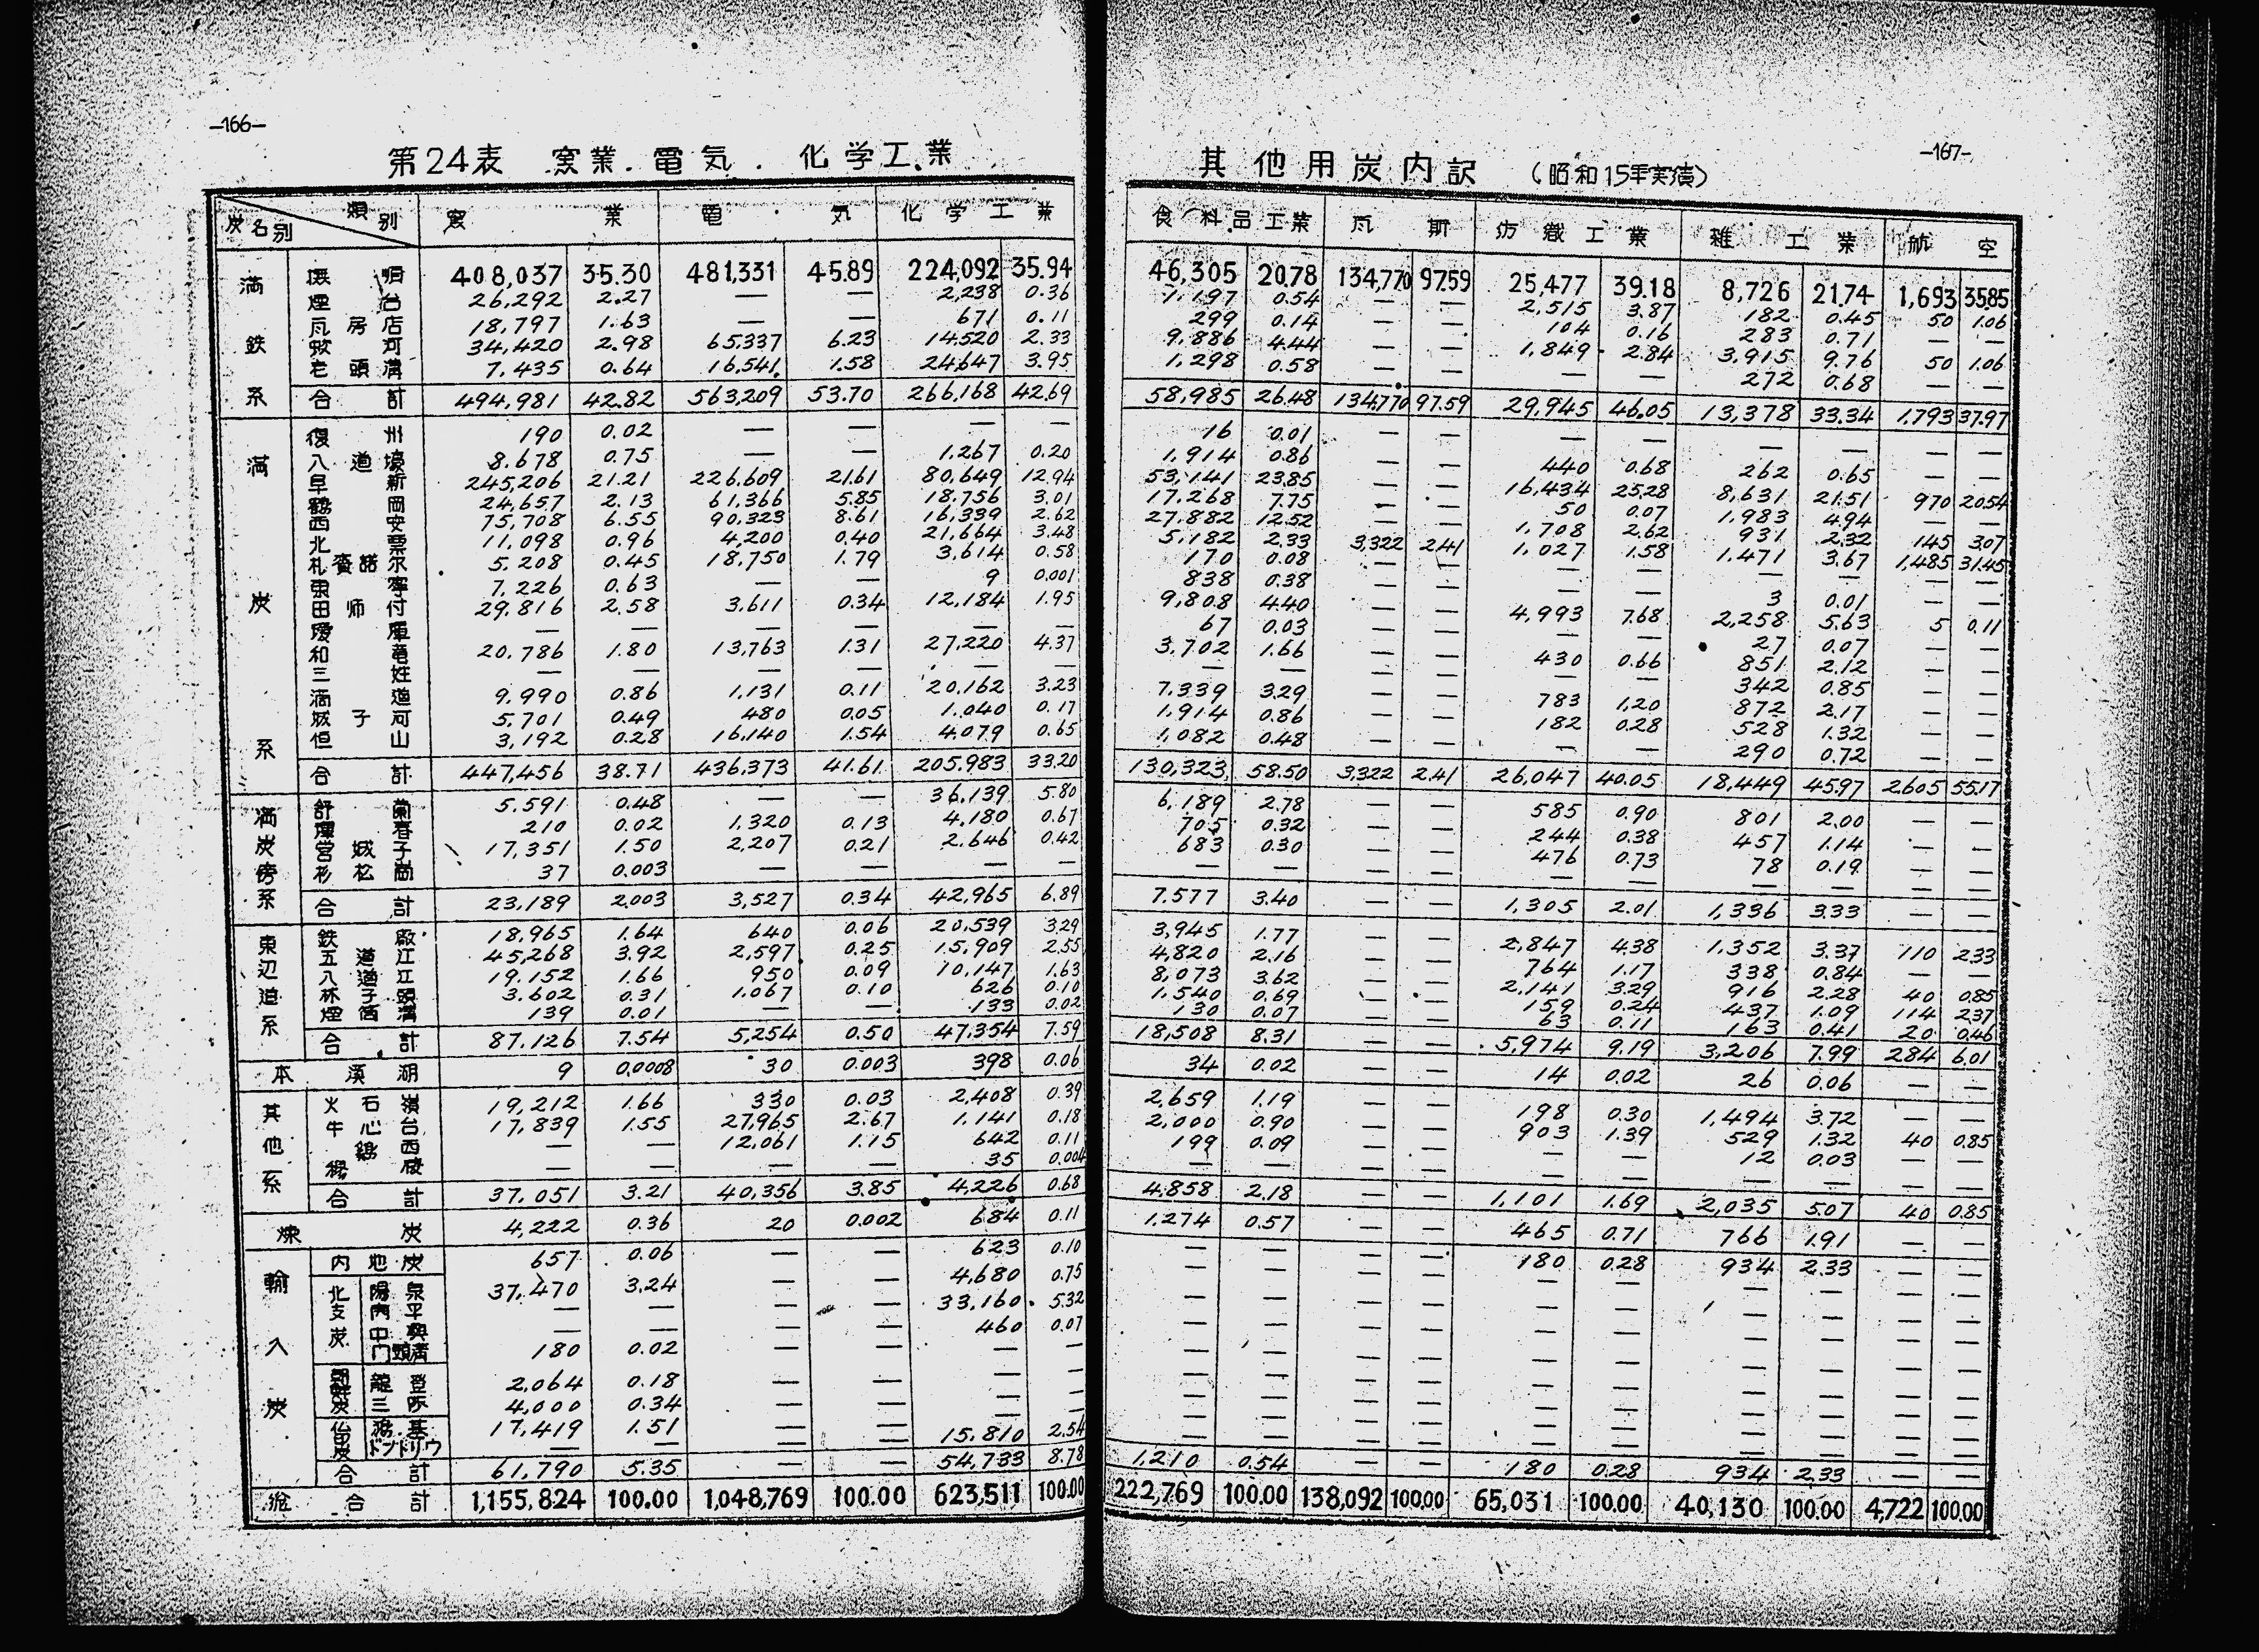 —166—
第24表 窯業.電気.化学工業
類別
炭名別
窯業 電気 化学工業
満鉄系
撫順 408,037 35.30 481,331 45.89 224,092 35.94
煙台 26,292 2.27 — — 2,238 0.36
瓦房店 18,797 1.63 — — 671 0.11
蛟河 34,420 2.98 65,337 6.23 14,520 2.33
老頭溝 7,435 0.64 16,541 1.58 24,647 3.95
合計 494,981 42.82 563,209 53.70 266,168 42.69
満炭系
復州 190 0.02 — — — —
八道壕 8,678 0.75 — — 1,267 0.20
阜新 245,206 21.21 226,609 21.61 80,649 12.94
鶴岡 24,657 2.13 61,366 5.85 18,756 3.01
西安 75,708 6.55 90,323 8.61 16,339 2.62
北票 11,098 0.96 4,200 0.40 21,664 3.48
札賚諾尔 5,208 0.45 18,750 1.79 3,614 0.58
東寧 7,226 0.63 — — 9 0.001
田师付 29,816 2.58 3,611 0.34 12,184 1.95
璦琿 — — — — — —
和竜 20,786 1.80 13,763 1.31 27,220 4.37
三姓 — — — — — —
滴道 9,990 0.86 1,131 0.11 20,162 3.23
城子河 5,701 0.49 480 0.05 1,040 0.17
恒山 3,192 0.28 16,140 1.54 4,079 0.65
合計 447,456 38.71 436,373 41.61 205,983 33.20
満炭傍系
舒蘭 5,591 0.48 — — 36,139 5.80
琿春 210 0.02 1,320 0.13 4,180 0.67
営城子 17,351 1.50 2,207 0.21 2,646 0.42
杉松崗 37 0.003 — — — —
合計 23,189 2.003 3,527 0.34 42,965 6.89
東辺道系
鉄廠 18,965 1.64 640 0.06 20,539 3.29
五道江 45,268 3.92 2,597 0.25 15,909 2.55
八道江 19,152 1.66 950 0.09 10,147 1.63
林子頭 3,602 0.31 1,067 0.10 626 0.10
煙筒溝 139 0.01 — — 133 0.02
合計 87,126 7.54 5,254 0.50 47,354 7.59
本溪湖 9 0.0008 30 0.003 398 0.06
其他系
火石嶺 19,212 1.66 330 0.03 2,408 0.39
牛心台 17,839 1.55 27,965 2.67 1,141 0.18
鶏西 — — 12,061 1.15 642 0.11
— — — — 35 0.004
合計 37,051 3.21 40,356 3.85 4,226 0.68
煉炭 4,222 0.36 20 0.002 684 0.11
輸入炭
内地炭 657 0.06 — — 623 0.10
北支炭
陽泉 37,470 3.24 — — 4,680 0.75
内平 — — — — 33,160 5.32
中興 — — — — 460 0.07
门頭溝 180 0.02 — — — —
朝鮮炭
龍登 2,064 0.18 — — — —
三陟 4,000 0.34 — — — —
仏印炭
鴻基 17,419 1.51 — — 15,810 2.54
ドントリウ — — — —
合計 61,790 5.35 — — 54,733 8.78
総合計 1,155,824 100.00 1,048,769 100.00 623,511 100.00
—167—
其他用炭内記 (昭和15年実績)
食料品工業 瓦斯 紡織工業 雜工業 航空
46,305 20.78 134,770 97.59 25,477 39.18 8,726 21.74 1,693 35.85
1,197 0.54 — — 2,515 3.87 182 0.45 50 1.06
299 0.14 — — 104 0.16 283 0.71 — —
9,886 4.44 — — 1,849 2.84 3,915 9.76 50 1.06
1,298 0.58 — — — — 272 0.68 — —
58,985 26.48 134,770 97.59 29,945 46.05 13,378 33.34 1,793 37.97
16 0.01 — — — — — — — —
1,914 0.86 — — 440 0.68 262 0.65 — —
53,141 23.85 — — 16,434 25.28 8,631 21.51 970 20.54
17,268 7.75 — — 50 0.07 1,983 4.94 — —
27,882 12.52 — — 1,708 2.62 931 2.32 145 3.07
5,182 2.33 3,322 2.41 1,027 1.58 1,471 3.67 1,485 31.45
170 0.08 — — — — — — — —
838 0.38 — — — — 3 0.01 — —
9,808 4.40 — — 4,993 7.68 2,258 5.63 5 0.11
67 0.03 — — — — 27 0.07 — —
3,702 1.66 — — 430 0.66 851 2.12 — —
— — — — — — 342 0.85 — —
7,339 3.29 — — 783 1.20 872 2.17 — —
1,914 0.86 — — 182 0.28 528 1.32 — —
1,082 0.48 — — — — 290 0.72 — —
130,323 58.50 3,322 2.41 26,047 40.05 18,449 45.97 2,605 55.17
6,189 2.78 — — 585 0.90 801 2.00 — —
705 0.32 — — 244 0.38 457 1.14 — —
683 0.30 — — 476 0.73 78 0.19 — —
— — — — — — — — — —
7,577 3.40 — — 1,305 2.01 1,336 3.33 — —
3,945 1.77 — — 2,847 4.38 1,352 3.37 110 2.33
4,820 2.16 — — 764 1.17 338 0.84 — —
8,073 3.62 — — 2,141 3.29 916 2.28 40 0.85
1,540 0.69 — — 159 0.24 437 1.09 114 2.37
130 0.07 — — 63 0.11 163 0.41 20 0.46
18,508 8.31 — — 5,974 9.19 3,206 7.99 284 6.01
34 0.02 — — 14 0.02 26 0.06 — —
2,659 1.19 — — 198 0.30 1,494 3.72 — —
2,000 0.90 — — 903 1.39 529 1.32 40 0.85
199 0.09 — — — — 12 0.03 — —
— — — — — — — — — —
4,858 2.18 — — 1,101 1.69 2,035 5.07 40 0.85
1,274 0.57 — — 465 0.71 766 1.91 — —
— — — — 180 0.28 934 2.33 — —
— — — — — — — — — —
— — — — — — — — — —
— — — — — — — — — —
— — — — — — — — — —
— — — — — — — — — —
— — — — — — — — — —
— — — — — — — — — —
— — — — — — — — — —
1,210 0.54 — — 180 0.28 934 2.33 — —
222,769 100.00 138,092 100.00 65,031 100.00 40,130 100.00 4,722 100.00